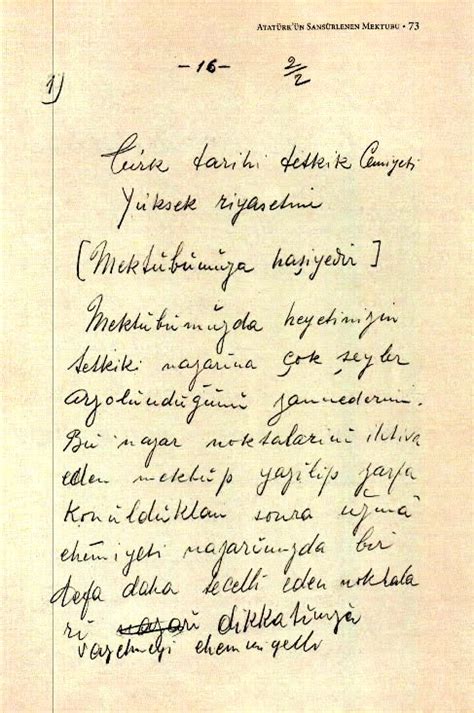 ATATÜRK'ÜN SANSÜRLENEN MEKTUBU • 73
-16- 2/2
1)
Türk tarihi tetkik Cemiyeti
Yüksek riyasetine
[Mektübümüza haşiyedir]
Mektübümüzda heyetinizin
tetkiki nazarına çok şeyler
arzolünduğünü zannederim.
Bü nazar noktalarini ihtiva
eden mektüp yazilip zarfa
konüldüktan sonra
ehemiyeti nazarimizda bir
defa daha tecelli eden noktala
ri dikkatinize
vazetmeyi ehemmiyetli